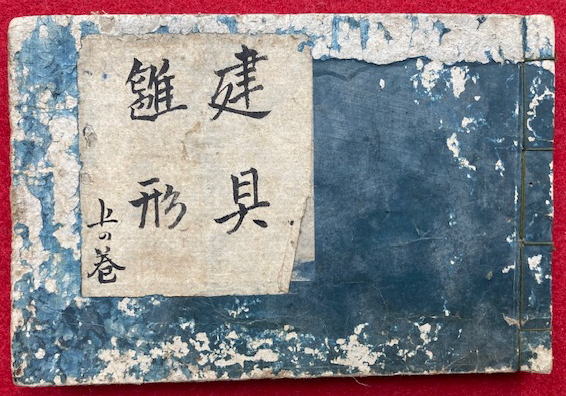 建具
雛形
上の巻